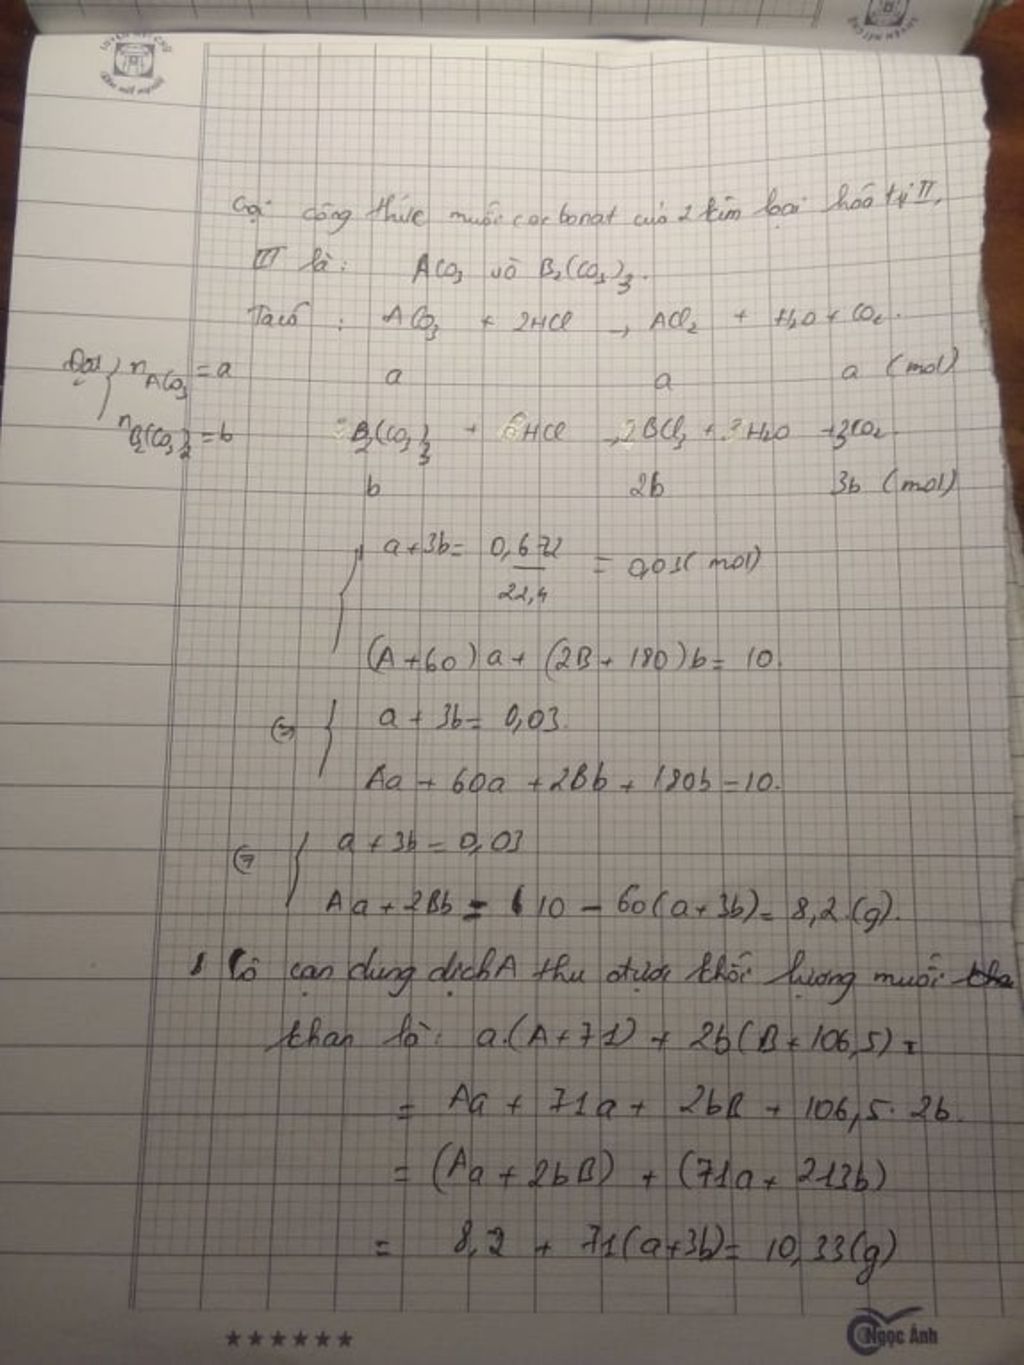 Gọi công thức muối cacbonat của 2 kim loại hoá trị II,
III là: ACO3 và B2(CO3)3.
Ta có: ACO3 + 2HCl → ACl2 + H2O + CO2.
Đặt { nACO3 = a a a a (mol)
nB2(CO3)3 = b B2(CO3)3 + 6HCl → 2BCl3 + 3H2O + 3CO2
b 2b 3b (mol)
{ a + 3b = 0,672 / 22,4 = 0,03 (mol)
(A + 60)a + (2B + 180)b = 10
⇔ { a + 3b = 0,03.
Aa + 60a + 2Bb + 180b = 10.
⇔ { a + 3b = 0,03
Aa + 2Bb = 10 - 60(a + 3b) = 8,2 (g).
Cô cạn dung dịch A thu được khối lượng muối
khan là: a.(A + 71) + 2b(B + 106,5) =
= Aa + 71a + 2bB + 106,5 . 2b.
= (Aa + 2bB) + (71a + 213b)
= 8,2 + 71(a + 3b) = 10,33 (g)
★★★★★★
Ngọc Ánh